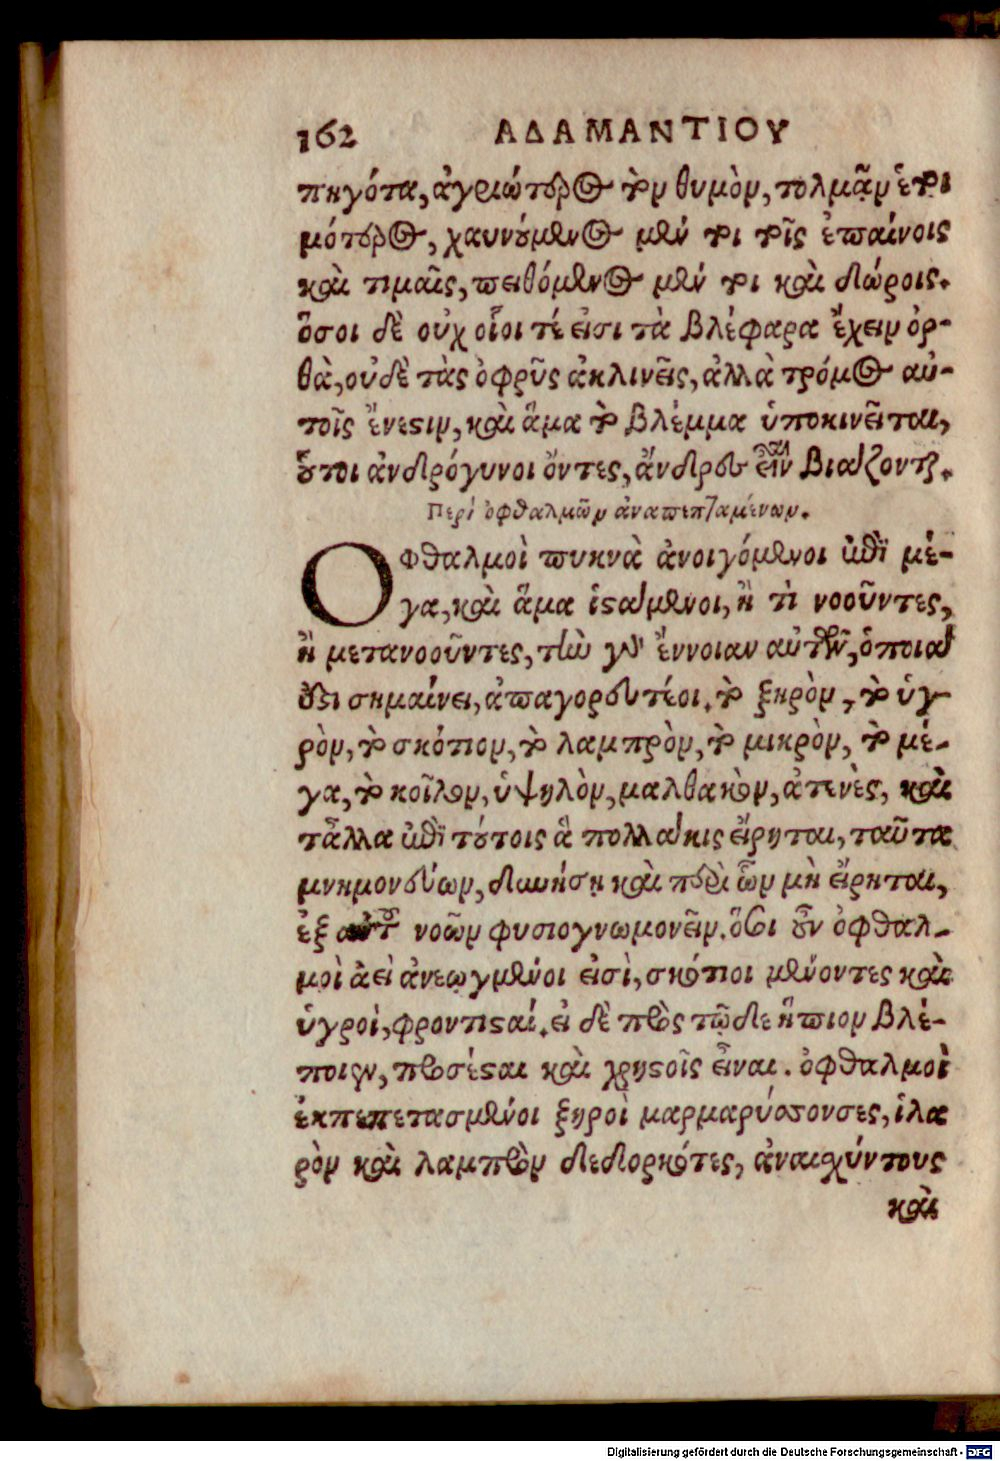 162 ΑΔΑΜΑΝΤΙΟΥ
πηγότα, ἀγριώτερος τὸν θυμὸν, τολμᾶν ἑτοι
μότερος, χαυνούμενος μέν τοι τοῖς ἐπαίνοις
καὶ τιμαῖς, πειθόμενος μέν τοι καὶ δώροις.
ὅσοι δὲ οὐχ οἷοι τέ εἰσι τὰ βλέφαρα ἔχειν ὀρ-
θὰ, οὐδὲ τὰς ὀφρῦς ἀκλινεῖς, ἀλλὰ τρόμος αὐ-
τοῖς ἔνεστιν, καὶ ἅμα τὸ βλέμμα ὑποκινεῖται,
οὗτοι ἀνδρόγυνοι ὄντες, ἄνδρες εἶναι βιάζονται.
Περὶ ὀφθαλμῶν ἀναπεπταμένων.
ΟΦθαλμοὶ πυκνὰ ἀνοιγόμενοι ἐπὶ μέ-
γα, καὶ ἅμα ἱστάμενοι, ἢ τὶ νοοῦντες,
ἢ μετανοοῦντες, τὴν γὰρ ἔννοιαν αὐτῶν, ὁποία
ἐστι σημαίνει, ἀπαγορευτέοι. τὸ ξηρὸν, τὸ ὑγ-
ρὸν, τὸ σκότιον, τὸ λαμπρὸν, τὸ μικρὸν, τὸ μέ-
γα, τὸ κοῖλον, ὑψηλὸν, μαλθακὸν, ἀτενὲς, καὶ
τἆλλα ἐπὶ τούτοις ἃ πολλάκις εἴρηται, ταῦτα
μνημονεύων, δυνήσῃ καὶ περὶ ὧν μὴ εἴρηται,
ἐξ νοῶν φυσιογνωμονεῖν. ὅσοι οὖν ὀφθαλ-
μοὶ ἀεὶ ἀνεωγμένοι εἰσὶ, σκότιοι μένοντες καὶ
ὑγροὶ, φροντισταί. εἰ δὲ πρὸς τῷδε ἤπιον βλέ-
ποιεν, προσέσται καὶ χρηστοῖς εἶναι. ὀφθαλμοὶ
ἐκπεπετασμένοι ξηροὶ μαρμαρύσσοντες, ἱλα
ρὸν καὶ λαμπρὸν δεδορκότες, ἀναισχύντους
καὶ
Digitalisierung gefördert durch die Deutsche Forschungsgemeinschaft - DFG